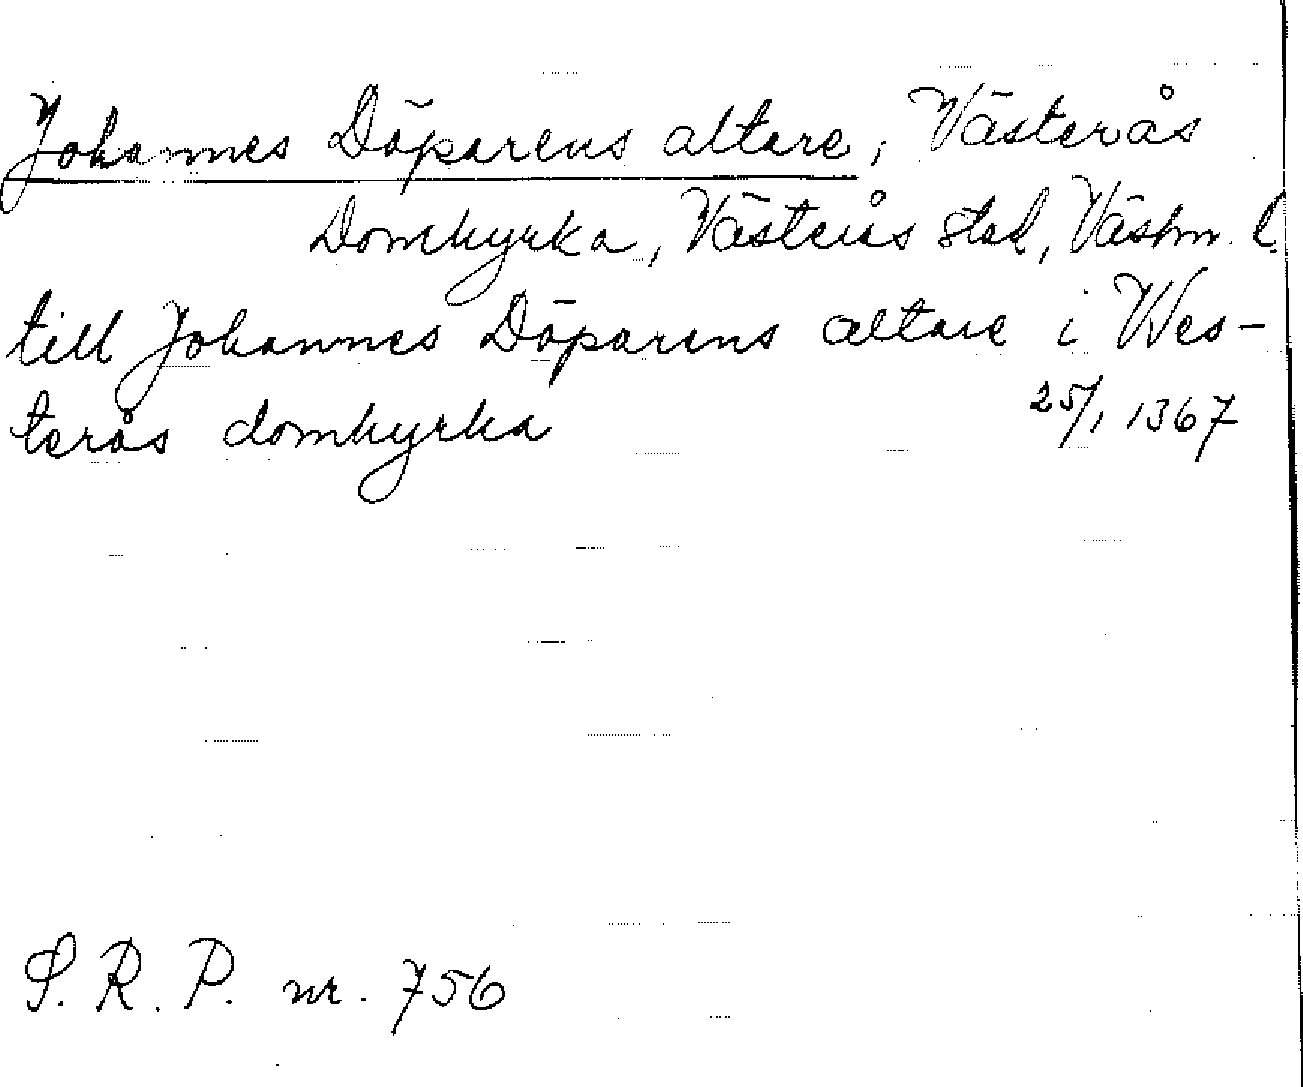 Johannes Döparens altare, Västerås
Domkyrka, Västerås stad, Västm. l.
till Johannes Döparens altare i Wes-
terås domkyrka 25/1 1367
S. R. P. nr. 756